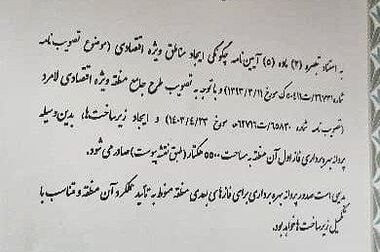 به استناد تبصره (۳) ماده (۵) آیین‌نامه چگونگی ایجاد مناطق ویژه اقتصادی (موضوع تصویب‌نامه
شماره ۳۶۷۳۳/ت۵۰۴۱۱ک مورخ ۱۳۹۴/۳/۱۱) و با توجه به تصویب طرح جامع منطقه ویژه اقتصادی لامرد
(تصویب نامه شماره ۶۵۸۳۰/ت۶۲۷۱۶ه مورخ ۱۴۰۳/۴/۲۳) و ایجاد زیرساخت‌ها، بدین‌وسیله
پروانه بهره‌برداری فاز اول آن منطقه به مساحت ۵۵۰۰ هکتار (طبق نقشه پیوست) صادر می‌شود.
بدیهی است صدور پروانه بهره‌برداری برای فازهای بعدی منطقه منوط به تأیید عملکرد آن منطقه و متناسب با
تکمیل زیرساخت‌ها خواهد بود.